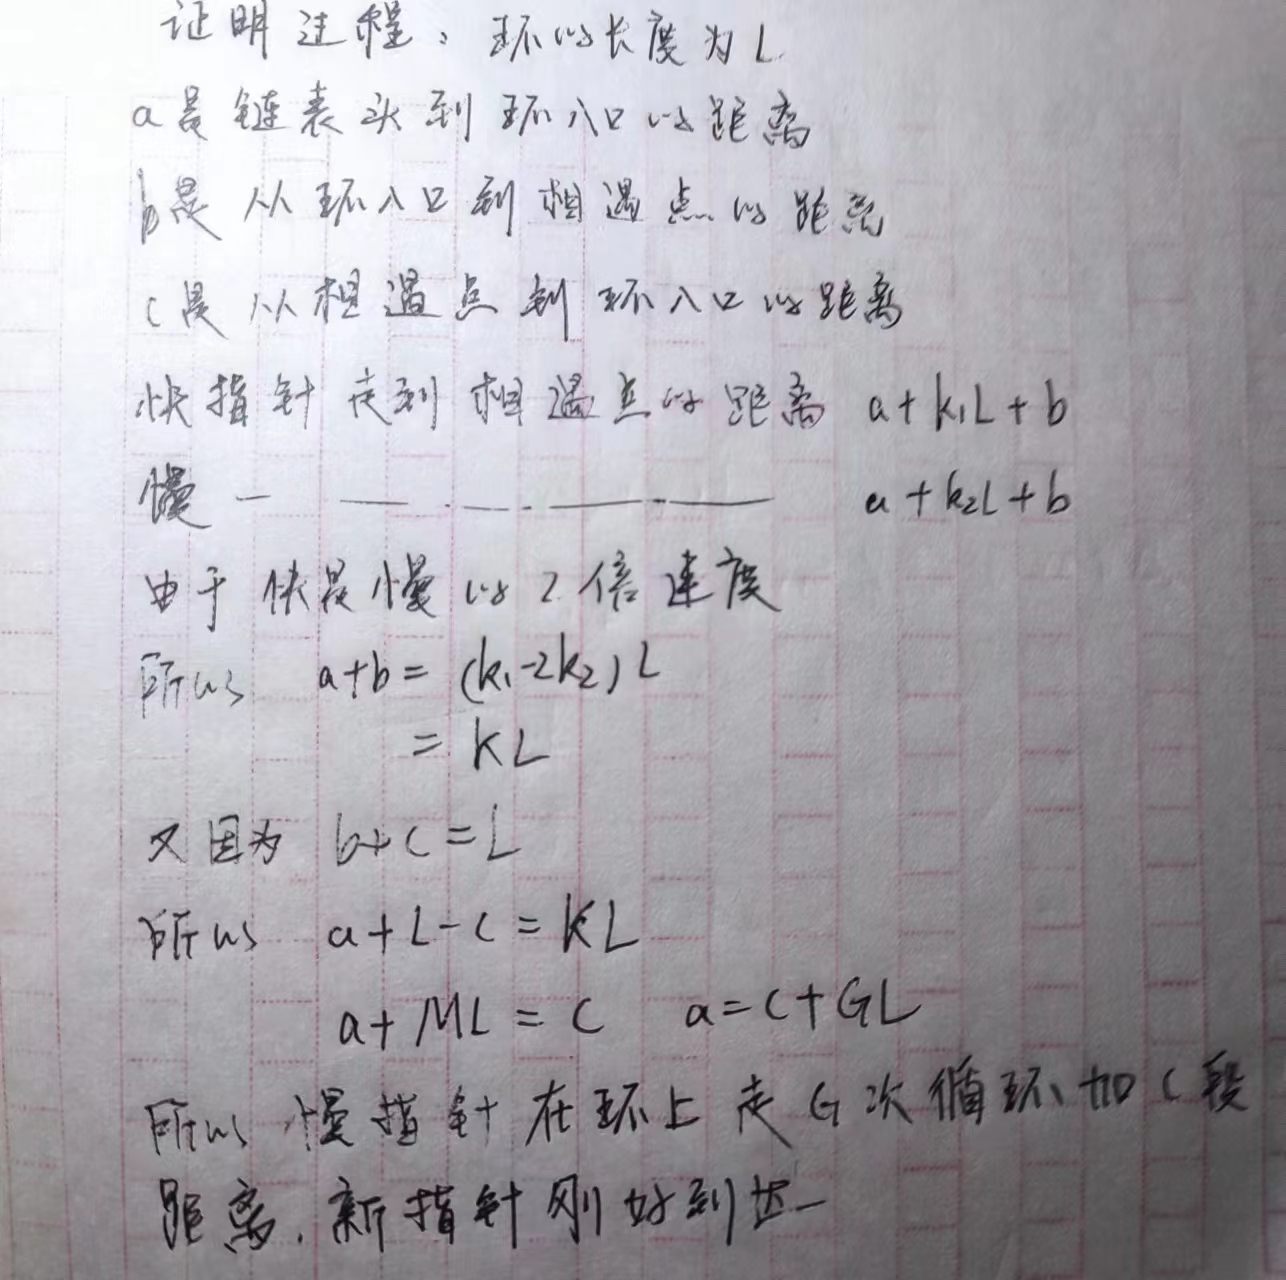 证明过程：环的长度为L
a是链表头到环入口的距离
b是从环入口到相遇点的距离
c是从相遇点到环入口的距离
快指针走到相遇点的距离 a+k₁L+b
慢 — —— —·—·——·—— a+k₂L+b
由于快是慢的2倍速度
所以 a+b=(k₁-2k₂)L
=KL
又因为 b+c=L
所以 a+L-c=KL
a+ML=c a=c+GL
所以慢指针在环上走G次循环加c段
距离，新指针刚好到达